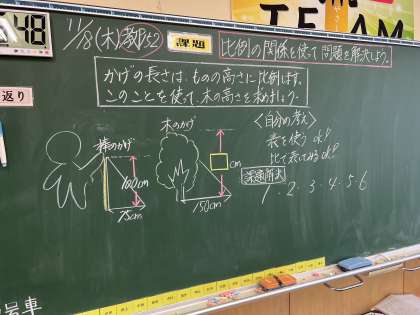 48
TEAM
11/8(木)教P52
課題
比例の関係を使って問題を解決しよう。
返り
かげの長さは、ものの高さに比例します。
このことを使って、木の高さを求めましょう。
棒のかげ
100cm
75cm
木のかげ
cm
150cm
<自分の考え>
表を使う ok!
比で表してみる ok!
課題解決
1・2・3・4・5・6
号車